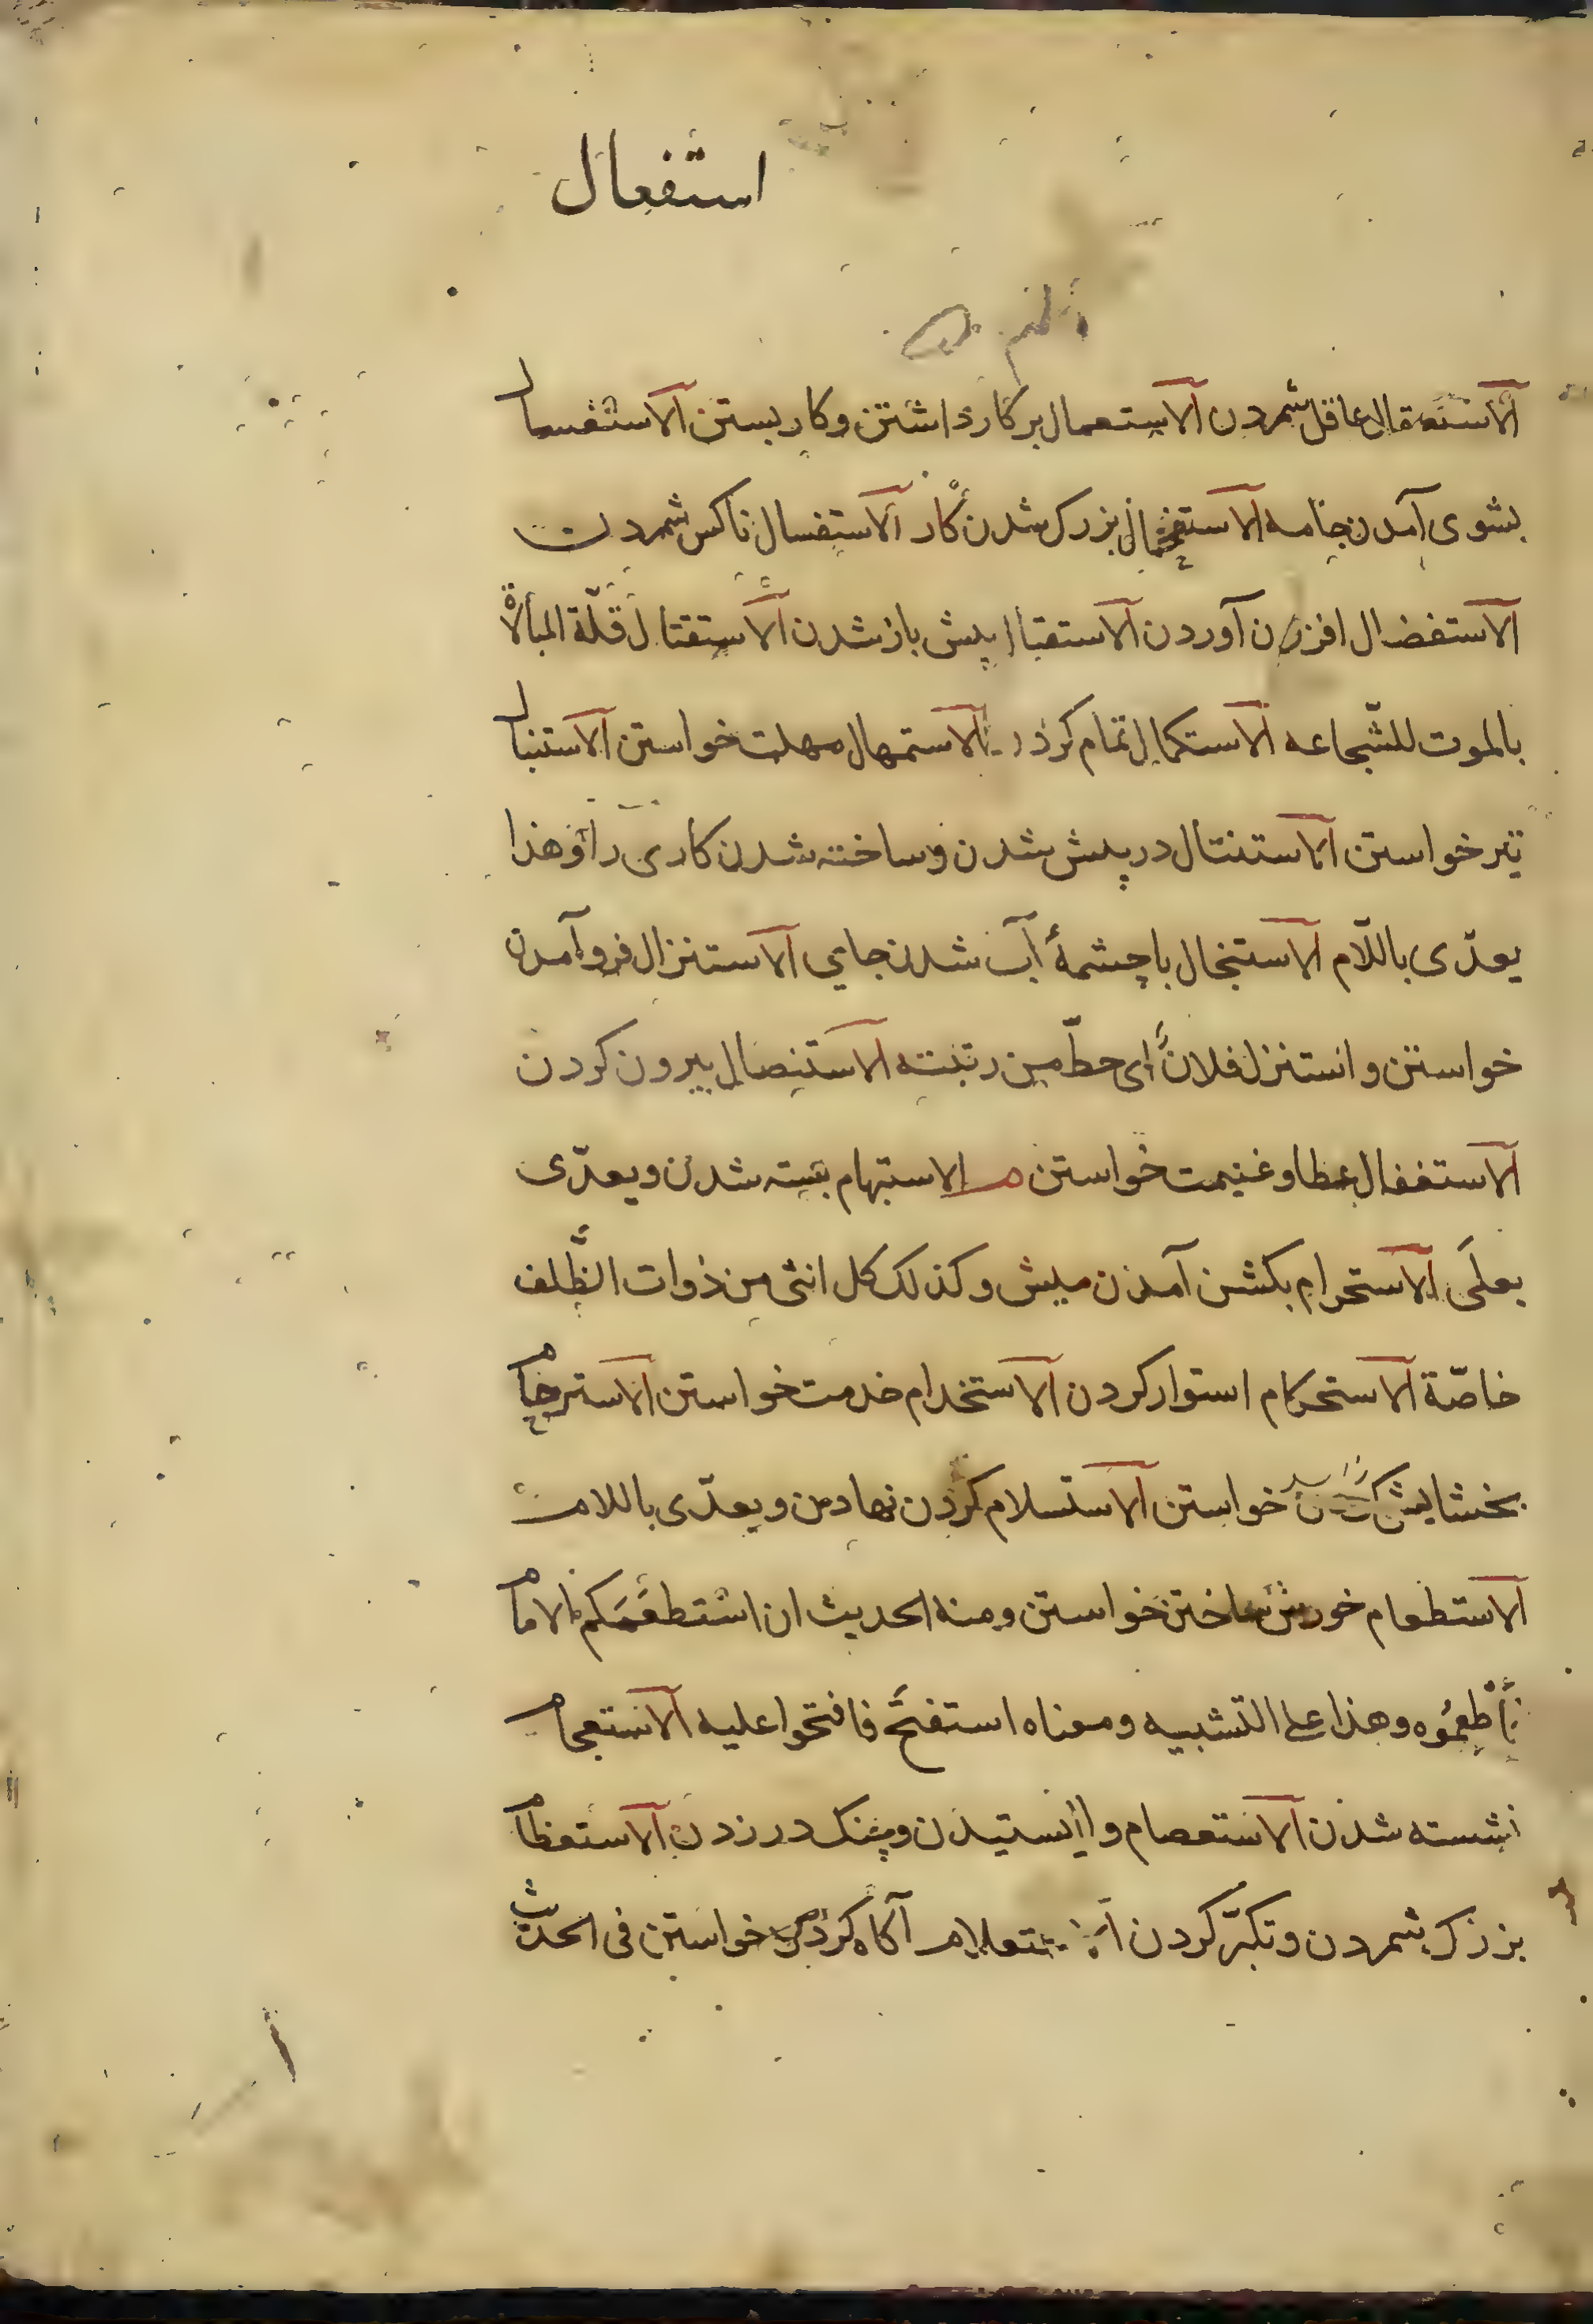 استفعال
الاستعقال عاقل شمردن الاستعمال بر کار داشتن و کار بستن الاستغسال
بشوی آمدن جامه الاستفحال بزرک شدن کار الاستفسال ناکس شمردن
الاستفضال افزون آوردن الاستقبال پیش باز شدن الاستقتال قلّة المبالاة
بالموت للشّجاعه الاستکمال تمام کردن الاستمهال مهلت خواستن الاستنبال
تیر خواستن الاستنتال در پیش شدن و ساخته شدن کاری را و هذا
یعدّی باللّام الاستنجال با چشمهٔ آب شدن جای الاستنزال فرو آمدن
خواستن و استنزل فلانٌ ای حطّ من رتبته الاستنصال بیرون کردن
الاستنفال عطا و غنیمت خواستن م الاستبهام بسته شدن و یعدّی
بعلَی الاستحرام بکشن آمدن میش و کذلک کل انثی من ذوات الظّلف
خاصّة الاستحکام استوار کردن الاستخدام خدمت خواستن الاسترحام
بخشایش خواستن الاستسلام کردن نهادن و یعدّی باللام
الاستطعام خورش خواستن و منه الحدیث ان استطعمکم الامام
فأطعموه و هذا علی التشبیه و معناه استفتح فافتحوا علیه الاستعجام
بسته شدن الاستعصام وا ایستیدن و چنک در زدن الاستعظام
بزرک شمردن و تکبّر کردن الاستعلام آکاه کردن خواستن فی الحدیث